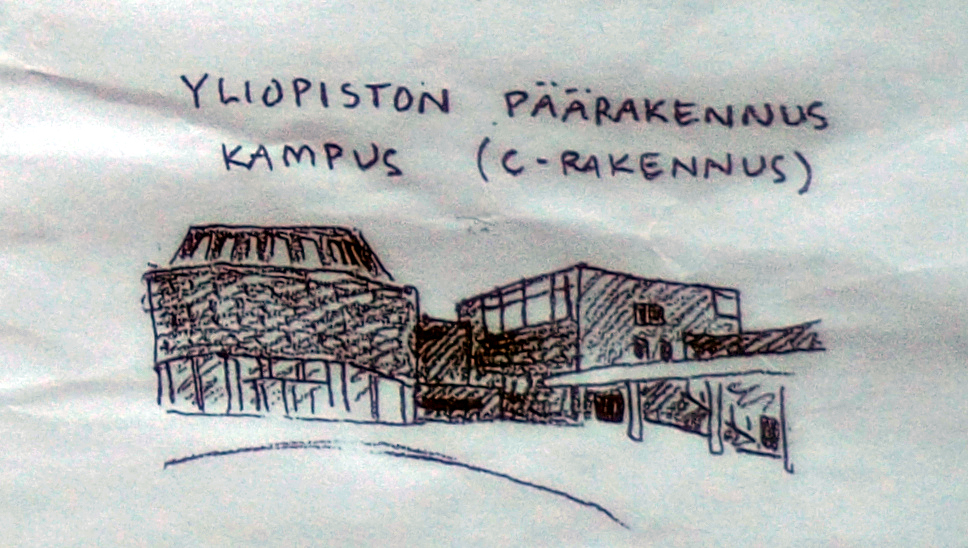 YLIOPISTON PÄÄRAKENNUS
KAMPUS (C-RAKENNUS)